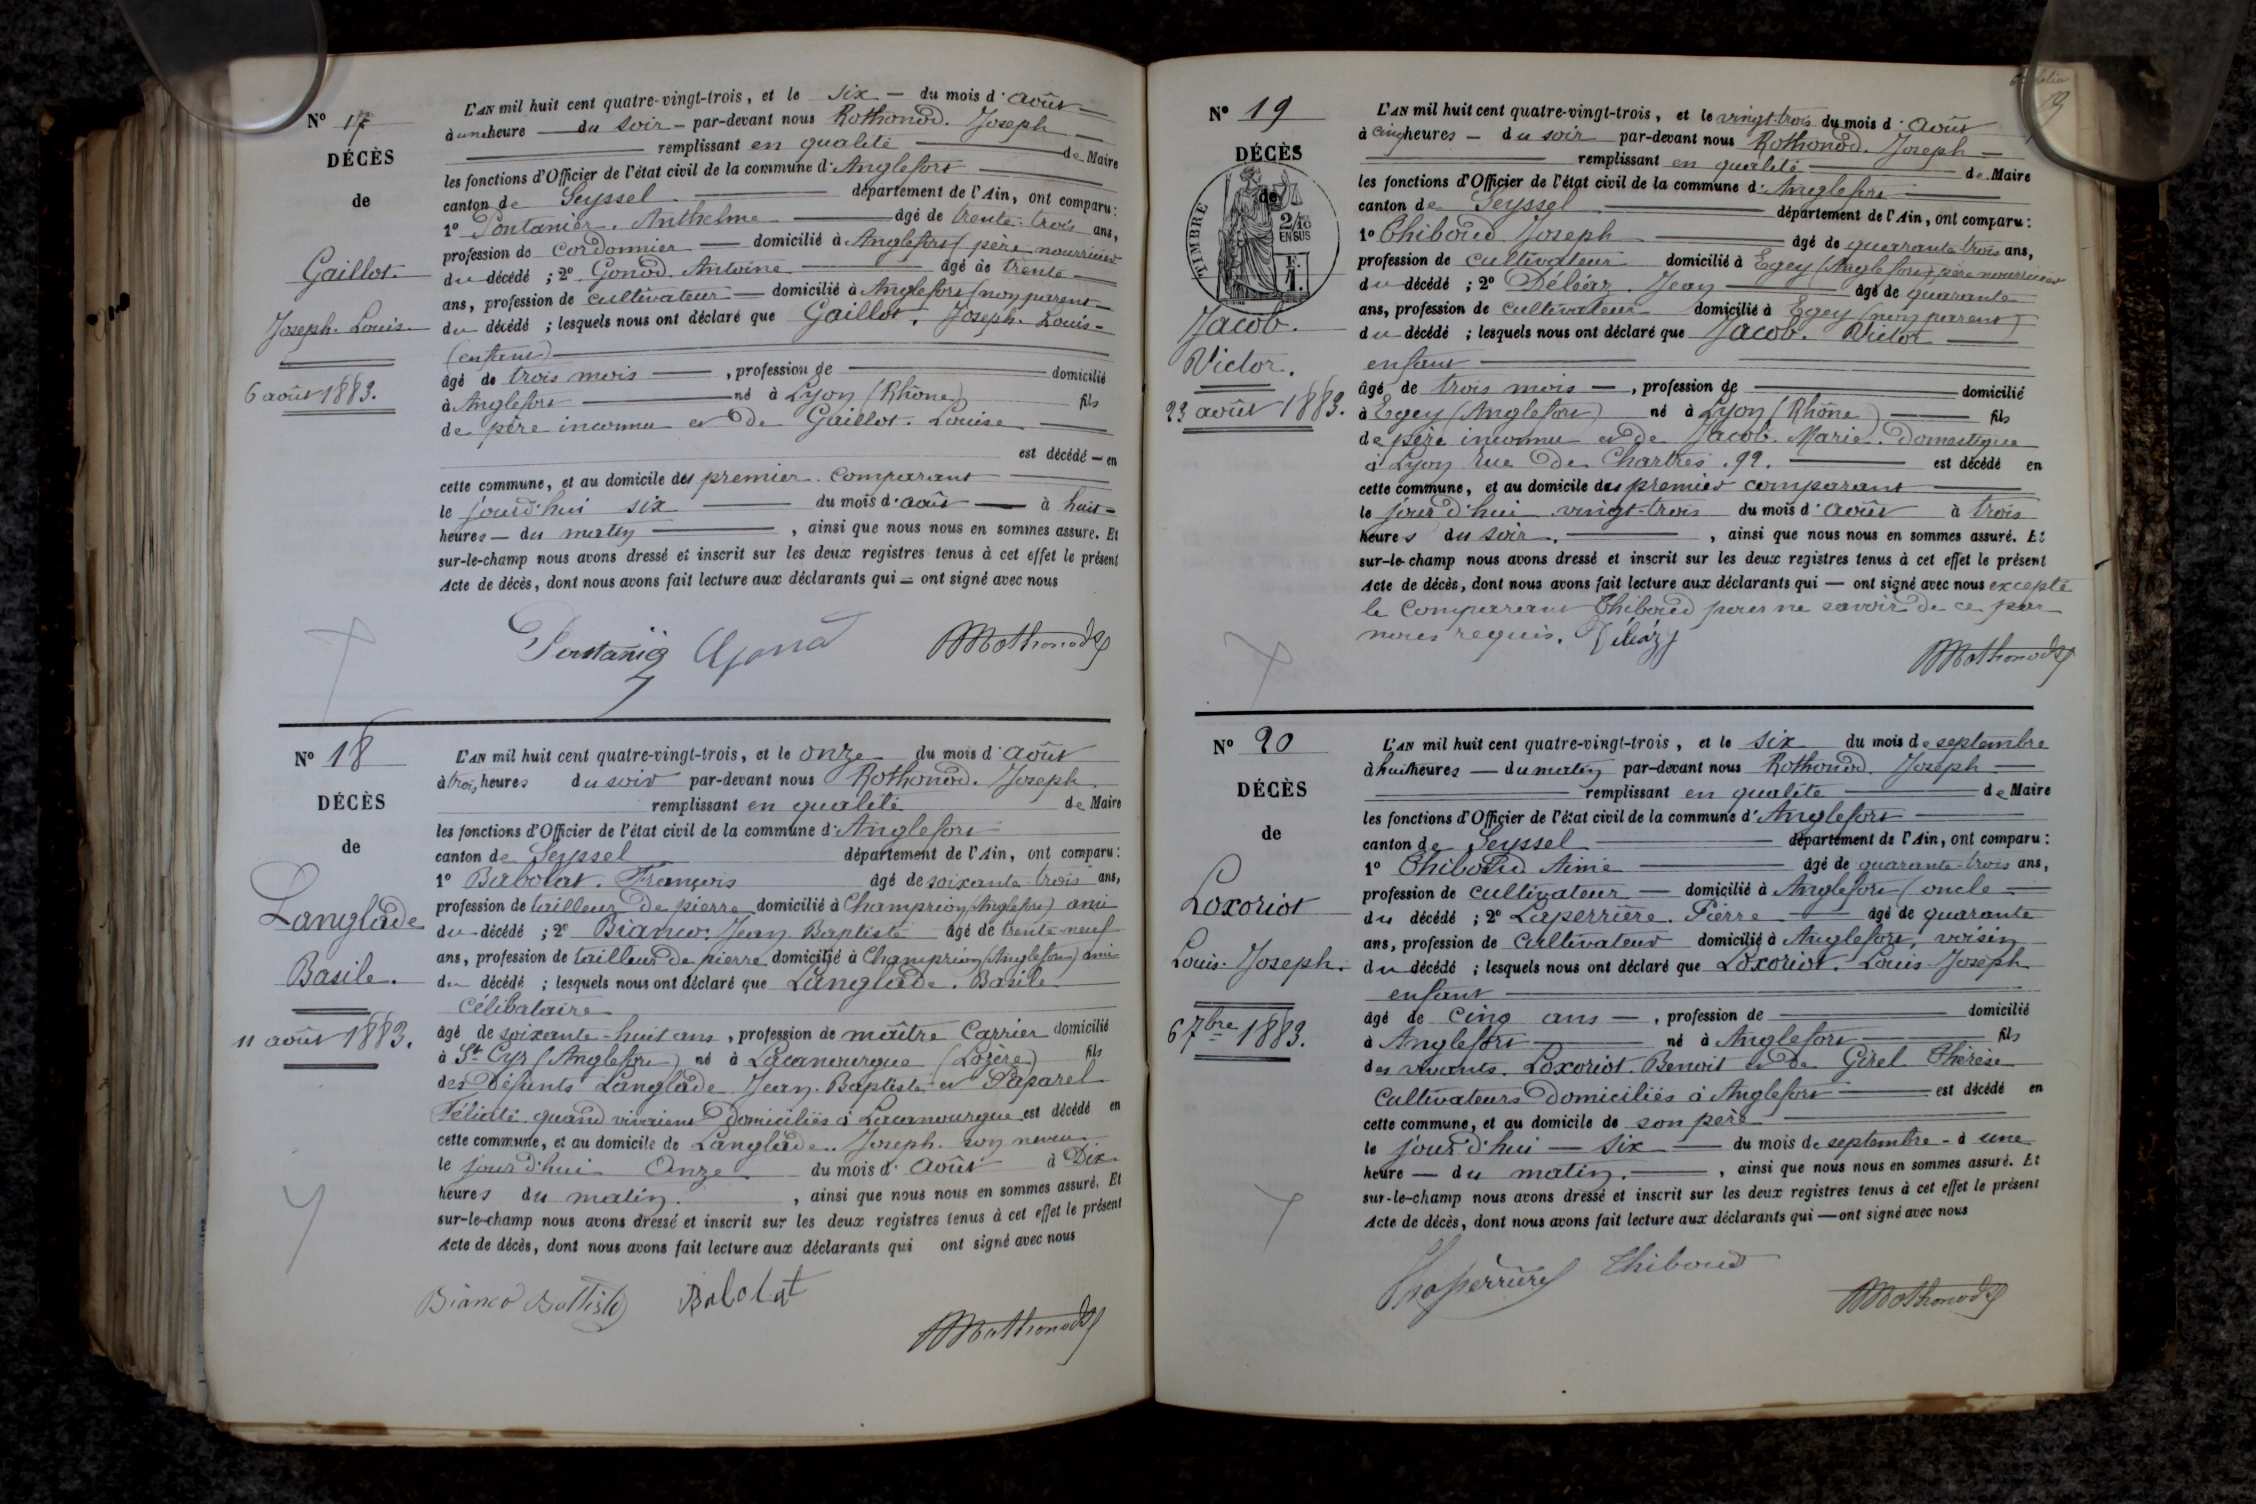 N° 17
DÉCÈS
de
Gaillot.
Joseph. Louis.
6 août 1883.
L'AN mil huit cent quatre-vingt-trois, et le six — du mois d'août
à une heure — du soir — par-devant nous Rothonod. Joseph
remplissant en qualité de Maire
les fonctions d'Officier de l'état civil de la commune d'Anglefort
canton de Seyssel département de l'Ain, ont comparu :
1° Pontanier. Anthelme âgé de trente-trois ans,
profession de cordonnier — domicilié à Anglefort (père nourricier
du décédé ; 2° Gonod. Antoine âgé de trente
ans, profession de cultivateur — domicilié à Anglefort (non parent
du décédé ; lesquels nous ont déclaré que Gaillot. Joseph. Louis
(enfant)
âgé de trois mois —, profession de domicilié
à Anglefort né à Lyon (Rhône) fils
de père inconnu et de Gaillot. Louise
est décédé — en
cette commune, et au domicile des premier comparant
le jourd'hui six du mois d'août — à huit
heures — du matin, ainsi que nous nous en sommes assuré. Et
sur-le-champ nous avons dressé et inscrit sur les deux registres tenus à cet effet le présent
Acte de décès, dont nous avons fait lecture aux déclarants qui — ont signé avec nous
Gonod Rothonod
N° 18
DÉCÈS
de
Langlade
Basile.
11 août 1883.
L'AN mil huit cent quatre-vingt-trois, et le onze du mois d'août
à trois heures du soir par-devant nous Rothonod. Joseph
remplissant en qualité de Maire
les fonctions d'Officier de l'état civil de la commune d'Anglefort
canton de Seyssel département de l'Ain, ont comparu :
1° Babolat. François âgé de soixante-trois ans,
profession de tailleur de pierre domicilié à Champrion (Anglefort) ami
du décédé ; 2° Bianco. Jean Baptiste âgé de trente-neuf
ans, profession de tailleur de pierre domicilié à Champrion (Anglefort) ami
du décédé ; lesquels nous ont déclaré que Langlade. Basile
célibataire
âgé de soixante-huit ans, profession de maître carrier domicilié
à St Cyr (Anglefort) né à Lacanourgue (Lozère) fils
des défunts Langlade Jean-Baptiste et Paparel
Félicité quand vivaient domiciliés à Lacanourgue est décédé en
cette commune, et au domicile de Langlade. Joseph son neveu
le jourd'hui Onze du mois d'août à Dix
heures du matin., ainsi que nous nous en sommes assuré. Et
sur-le-champ nous avons dressé et inscrit sur les deux registres tenus à cet effet le présent
Acte de décès, dont nous avons fait lecture aux déclarants qui ont signé avec nous
Bianco Battista Babolat
Rothonod
19
N° 19
DÉCÈS
de
TIMBRE
2/10 EN SUS
Jacob.
Victor.
23 août 1883.
L'AN mil huit cent quatre-vingt-trois, et le vingt-trois du mois d'août
à cinq heures — du soir par-devant nous Rothonod. Joseph —
remplissant en qualité de Maire
les fonctions d'Officier de l'état civil de la commune d'Anglefort
canton de Seyssel département de l'Ain, ont comparu :
1° Thiboud Joseph âgé de quarante-trois ans,
profession de cultivateur domicilié à Egey (Anglefort) père nourricier
du décédé ; 2° Déléaz. Jean âgé de quarante
ans, profession de cultivateur domicilié à Egey (non parent)
du décédé ; lesquels nous ont déclaré que Jacob. Victor
enfant
âgé de trois mois —, profession de domicilié
à Egey (Anglefort) né à Lyon (Rhône) fils
de père inconnu et de Jacob. Marie. Domestique
à Lyon rue de Chartres. 92. est décédé en
cette commune, et au domicile des premier comparant
le jour d'hui vingt-trois du mois d'août à trois
heures du soir., ainsi que nous nous en sommes assuré. Et
sur-le-champ nous avons dressé et inscrit sur les deux registres tenus à cet effet le présent
Acte de décès, dont nous avons fait lecture aux déclarants qui — ont signé avec nous excepté
le comparant Thiboud pour ne savoir de ce par
nous requis. Déléaz
Rothonod
N° 20
DÉCÈS
de
Loxoriot
Louis-Joseph.
6 7bre 1883.
L'AN mil huit cent quatre-vingt-trois, et le six du mois de septembre
à huit heures — du matin par-devant nous Rothonod. Joseph —
remplissant en qualité de Maire
les fonctions d'Officier de l'état civil de la commune d'Anglefort
canton de Seyssel département de l'Ain, ont comparu :
1° Thiboud Aimé âgé de quarante-trois ans,
profession de cultivateur — domicilié à Anglefort (oncle —
du décédé ; 2° Laperrière. Pierre âgé de quarante
ans, profession de cultivateur domicilié à Anglefort, voisin
du décédé ; lesquels nous ont déclaré que Loxoriot. Louis Joseph
enfant
âgé de cinq ans —, profession de domicilié
à Anglefort né à Anglefort fils
des vivants. Loxoriot. Benoit et de Girel Thérèse
cultivateurs domiciliés à Anglefort est décédé en
cette commune, et au domicile de son père
le jour d'hui — six — du mois de septembre — à une
heure — du matin., ainsi que nous nous en sommes assuré. Et
sur-le-champ nous avons dressé et inscrit sur les deux registres tenus à cet effet le présent
Acte de décès, dont nous avons fait lecture aux déclarants qui — ont signé avec nous
Laperrière Thiboud
Rothonod